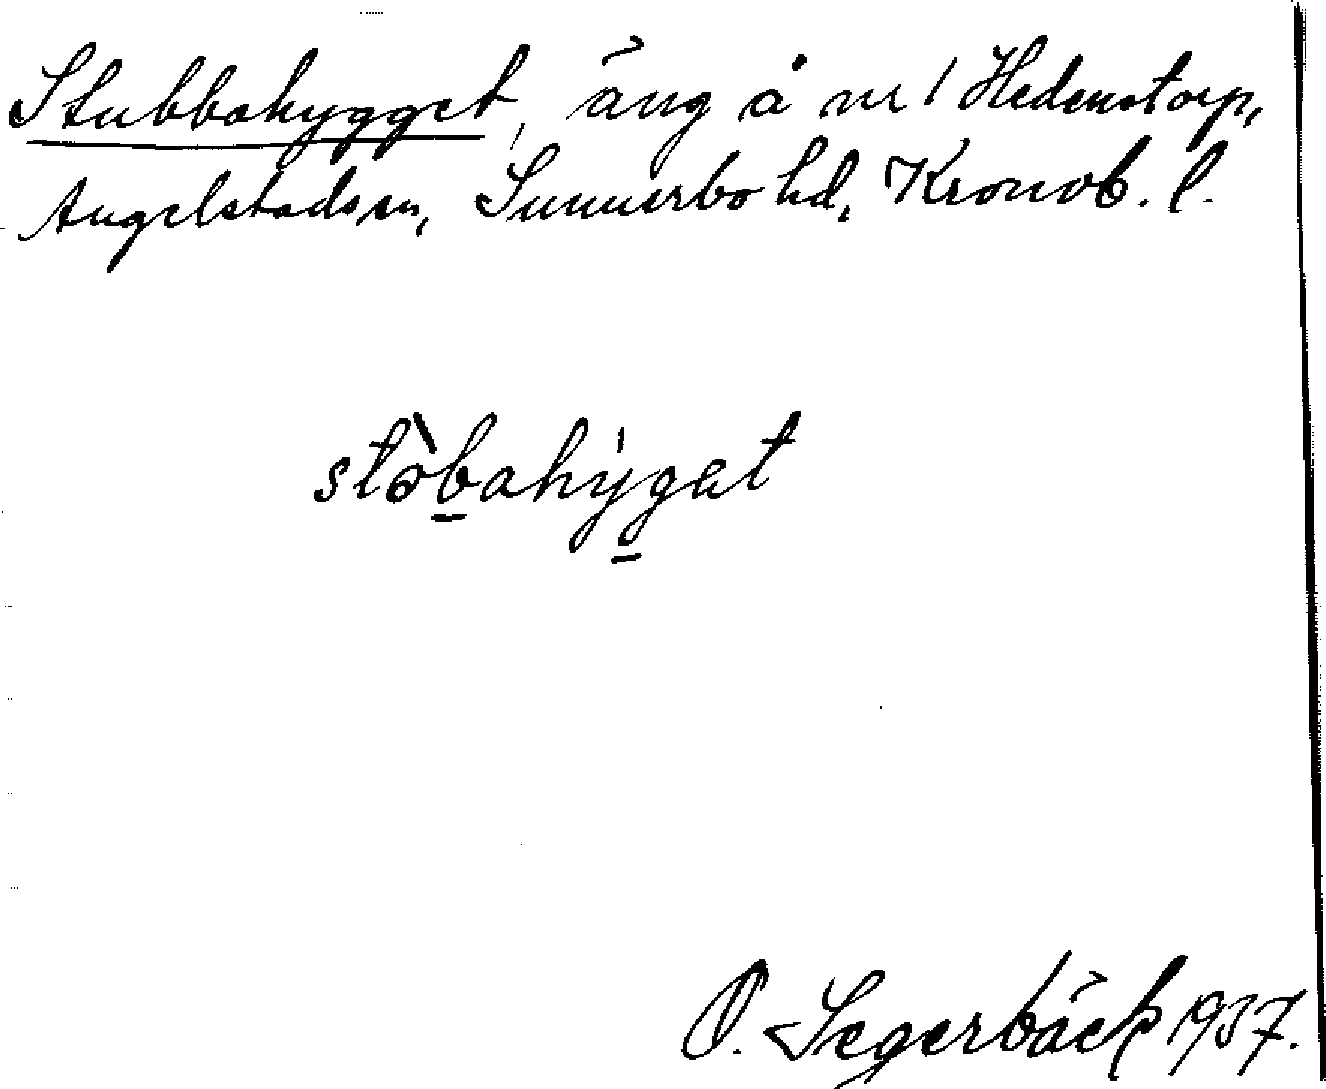 Stubbahygget, äng å nr 1 Hedenstorp,
Angelstads sn, Sunnerbo hd, Kronob. l.
stòb̲ahýg̲et
O. Segerbäck 1937.